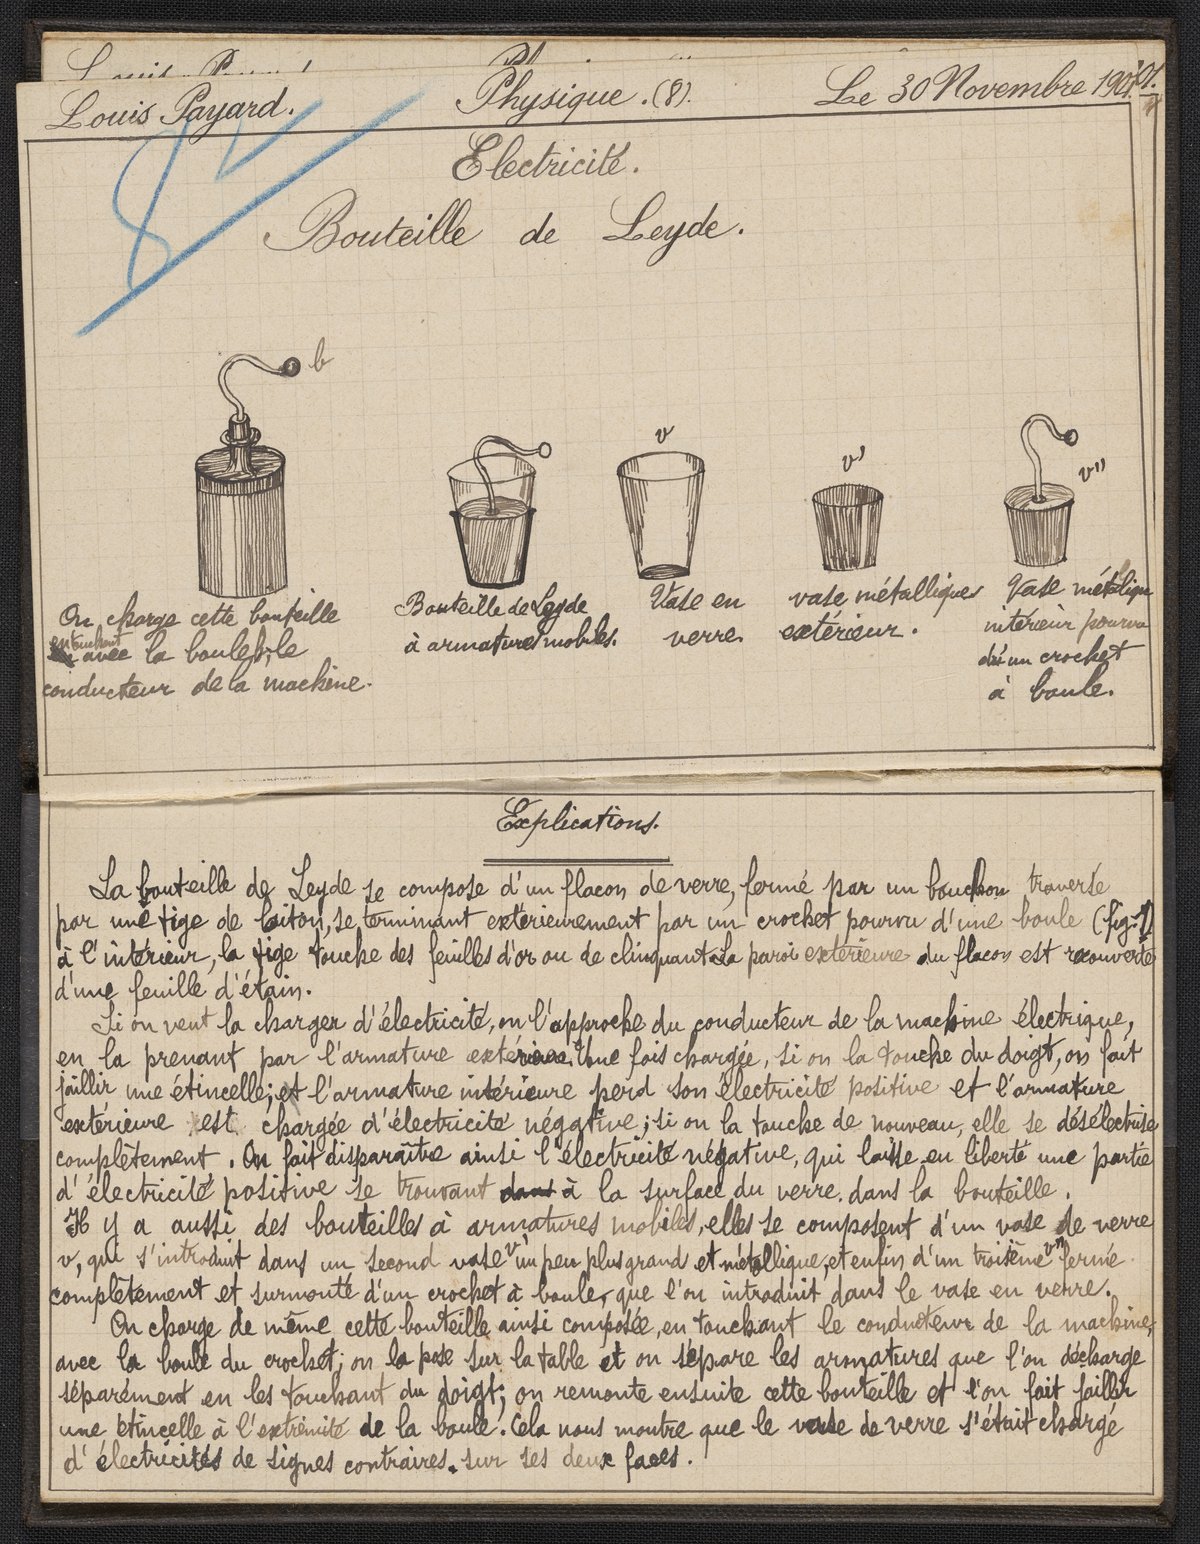 Louis Payard. Physique. (8). Le 30 Novembre 1901.
8
Electricité.
Bouteille de Leyde.
b
v
v'
v"
On charge cette bouteille
en touchant
avec la boule b, le
conducteur de la machine.
Bouteille de Leyde
à armatures mobiles.
Vase en
verre.
vase métalliques
extérieur.
Vase métallique
intérieur pourvu
d'un crochet
à boule.
Explications.
La bouteille de Leyde se compose d'un flacon de verre, fermé par un bouchon traversé
par une tige de laiton, se terminant extérieurement par un crochet pourvu d'une boule (fig-1)
à l'intérieur, la tige touche des feuilles d'or ou de clinquant. La paroi extérieure du flacon est recouverte
d'une feuille d'étain.
Si on veut la charger d'électricité, on l'approche du conducteur de la machine électrique,
en la prenant par l'armature extérieure. Une fois chargée, si on la touche du doigt, on fait
jaillir une étincelle; et l'armature intérieure perd son électricité positive et l'armature
extérieure est chargée d'électricité négative; si on la touche de nouveau, elle se désélectrise
complètement. On fait disparaître ainsi l'électricité négative, qui laisse en liberté une partie
d'électricité positive se trouvant dans à la surface du verre. dans la bouteille.
Il y a aussi des bouteilles à armatures mobiles, elles se composent d'un vase de verre
v, qui s'introduit dans un second vase v' un peu plus grand et métallique, et enfin d'un troisième v" fermé
complètement et surmonté d'un crochet à boule, que l'on introduit dans le vase en verre.
On charge de même cette bouteille ainsi composée, en touchant le conducteur de la machine,
avec la boule du crochet; on la pose sur la table et on sépare les armatures que l'on décharge
séparément en les touchant du doigt; on remonte ensuite cette bouteille et l'on fait jaillir
une étincelle à l'extrémité de la boule. Cela nous montre que le vase de verre s'était chargé
d'électricités de signes contraires. sur ses deux faces.